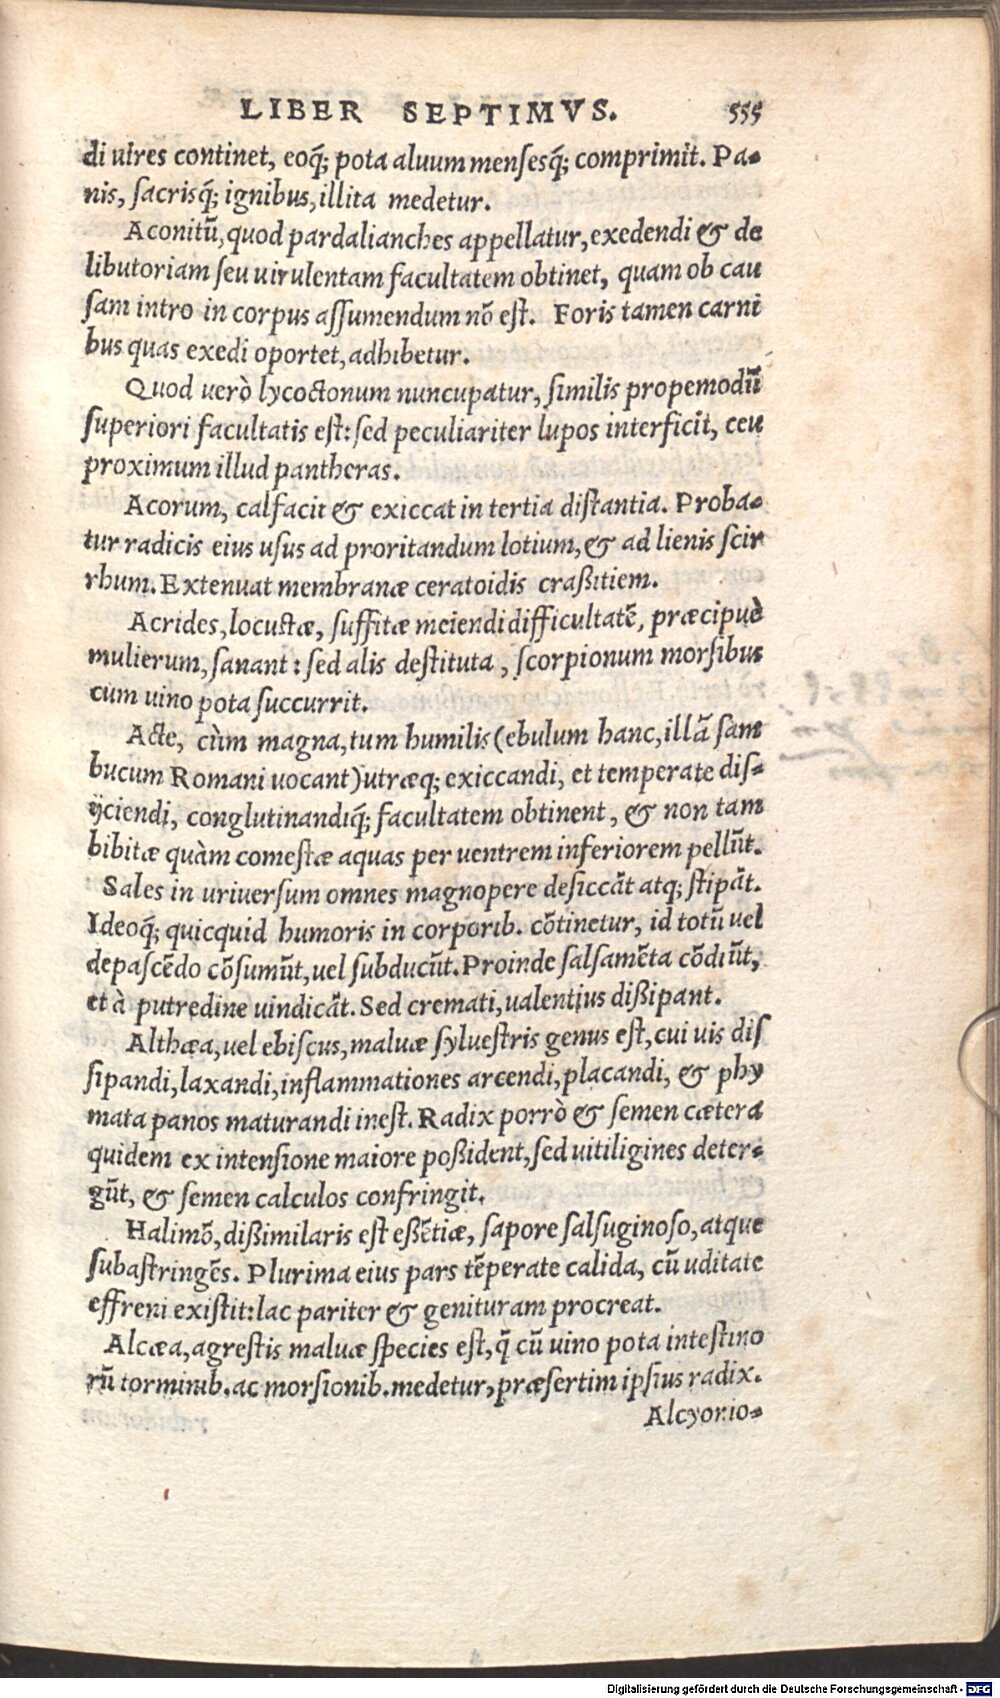 LIBER SEPTIMVS. 555
di uires continet, eoq́; pota aluum mensesq́; comprimit. Pa-
nis, sacrisq́; ignibus, illita medetur.
Aconitũ, quod pardalianches appellatur, exedendi & de
libutoriam seu uirulentam facultatem obtinet, quam ob cau
sam intro in corpus assumendum nõ est. Foris tamen carni
bus quas exedi oportet, adhibetur.
Quod verò lycoctonum nuncupatur, similis propemodũ
superiori facultatis est: sed peculiariter lupos interficit, ceu
proximum illud pantheras.
Acorum, calfacit & exiccat in tertia distantia. Proba-
tur radicis eius usus ad proritandum lotium, & ad lienis scir
rhum. Extenuat membranæ ceratoidis craßitiem.
Acrides, locustæ, suffitæ meiendi difficultatẽ, præcipuè
mulierum, sanant: sed alis destituta, scorpionum morsibus
cum uino pota succurrit.
Acte, cùm magna, tum humilis (ebulum hanc, illã sam
bucum Romani uocant) utræq; exiccandi, et temperate dis-
ijciendi, conglutinandiq́; facultatem obtinent, & non tam
bibitæ quàm comestæ aquas per ventrem inferiorem pellũt.
Sales in vriversum omnes magnopere desiccãt atq; stipãt.
Ideoq́; quicquid humoris in corporib. cõtinetur, id totũ vel
depascẽdo cõsumũt, vel subducũt. Proinde salsamẽta cõdiũt,
et à putredine uindicãt. Sed cremati, ualentius dißipant.
Althæa, vel ebiscus, maluæ sylvestris genus est, cui uis dis
sipandi, laxandi, inflammationes arcendi, placandi, & phy
mata panos maturandi inest. Radix porrò & semen cætera
quidem ex intensione maiore poßident, sed uitiligines deter-
gũt, & semen calculos confringit.
Halimõ, dißimilaris est eßẽtiæ, sapore salsuginoso, atque
subastringẽs. Plurima eius pars tẽperate calida, cũ uditate
effreni existit: lac pariter & genituram procreat.
Alcæa, agrestis maluæ species est, q̃ cũ uino pota intestino
rũ torminib. ac morsionib. medetur, præsertim ipsius radix.
Alcyonio-
Digitalisierung gefördert durch die Deutsche Forschungsgemeinschaft - DFG